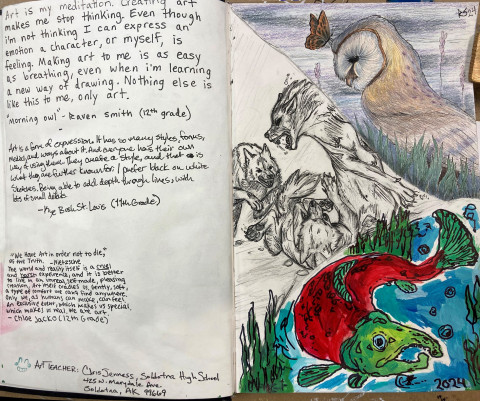 Art is my meditation. Creating art
makes me stop thinking. Even though
i'm not thinking I can express an
emotion a character, or myself, is
feeling. Making art to me is as easy
as breathing, even when i'm learning
a new way of drawing. Nothing else is
like this to me, only art.
"morning owl" - Raven Smith (12th grade)
Art is a form of expression. It has so many styles, forms,
medias, and ways about it. And everyone has their own
way of using them. They create a style, and that is
what they are further known for. I prefer black on white
sketches. Being able to add depth through lines, with
lots of small details
- Kye Bush St. Louis (11th Grade)
"We Have Art in order not to die,
of the Truth. - Nietzsche
The world and reality itself is a cruel
and harsh experience, and it is better
to live in an unreal self made, amazing
creation. Art itself creates us, gently, soft,
a type of comfort we can't find anywhere.
Only we, as humans can make, can feel.
An exclusive event, which makes us special,
which makes us real. We are art
- Chloe Jacko (12th Grade)
Art Teacher: Chris Jenness, Soldotna High School
425 W. Marydale Ave.
Soldotna, AK 99669
2024